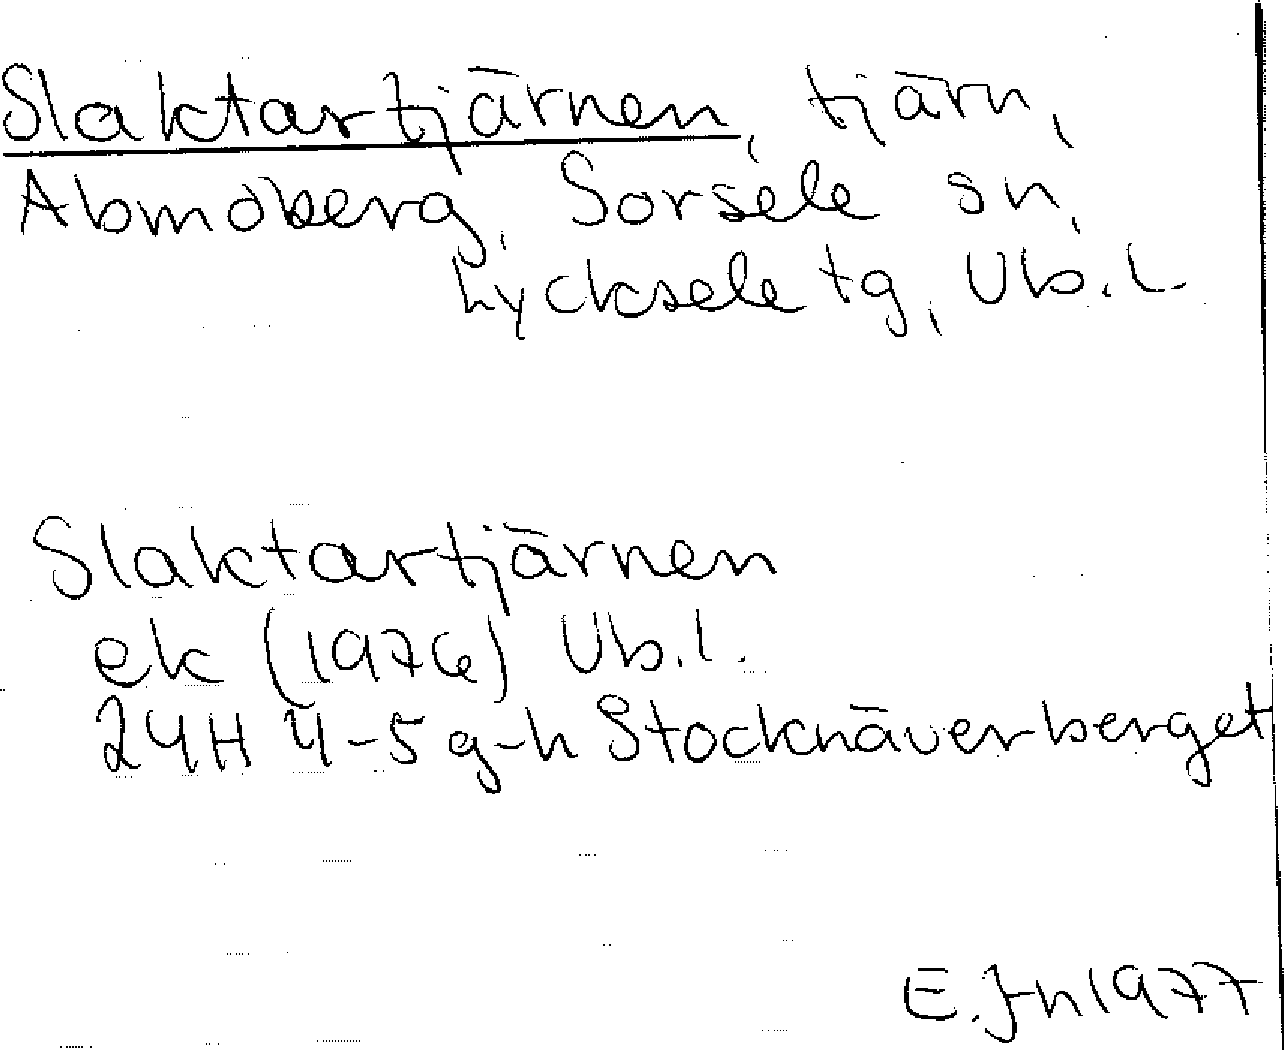 Slaktartjärnen, tjärn,
Abmoberg, Sorsele sn,
Lycksele tg, Vb.l.
Slaktartjärnen
ek (1976) Vb.l.
24H 4-5 g-h Stocknäverberget
E. Jn 1977